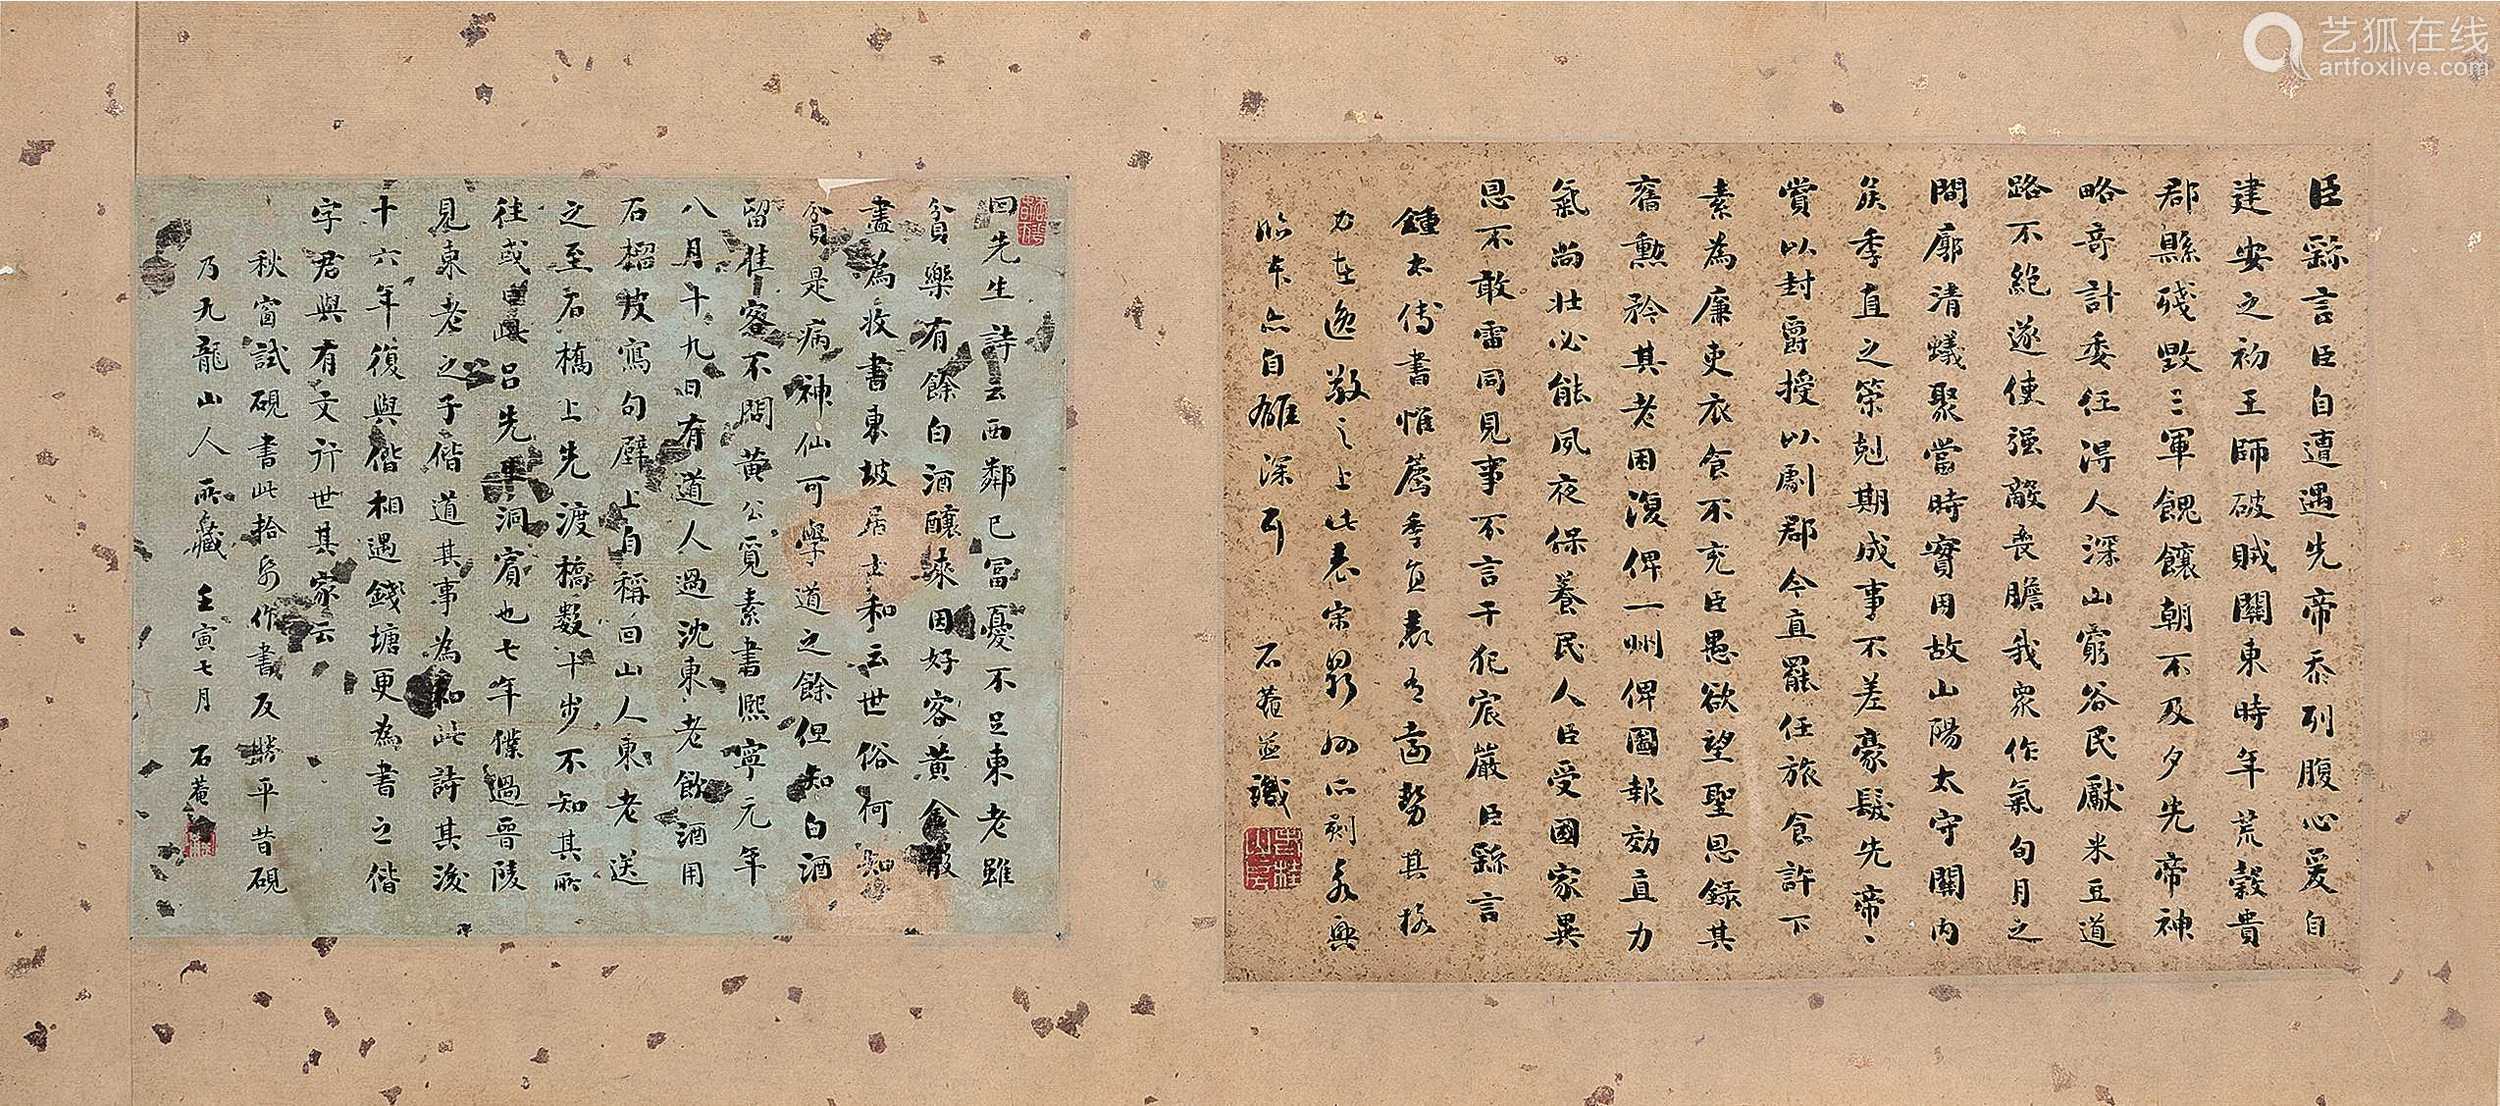 臣繇言臣自遭遇先帝忝列腹心爰自
建安之初王師破賊關東時年荒穀貴
郡縣殘毀三軍餽饟朝不及夕先帝神
略奇計委任得人深山窮谷民獻米豆道
路不絕遂使强敵喪膽我衆作氣旬月之
間廓清蟻聚當時實因故山陽太守關內
侯季直之策剋期成事不差豪髮先帝、
賞以封爵授以劇郡今直罷任旅食許下
素為廉吏衣食不充臣愚欲望聖恩錄其
舊勳矜其老困復俾一州俾圖報効直力
氣尚壯必能夙夜保養民人臣受國家異
恩不敢雷同見事不言干犯宸嚴臣繇言
鍾太傅書惟薦季直表為 其格
力在 之上此表宋 興
臨本 自 深 石菴並識
回先生詩云西鄰已富憂不足東老雖
貧樂有餘白酒釀來因好客黃金散
盡為收書東坡居士和云世俗何知
貧是病神仙可學道之餘但知白酒
留佳客不問黃公覓素書熙寧元年
八月十九日有道人過沈東老飲酒用
石榴皮寫句壁上自稱回山人東老送
之至石橋上先渡橋數十步不知其所
往或曰此呂先事洞賓也七年僕過晉陵
見東老之子偕道其事為和此詩其後
十六年復與偕相遇錢塘更為書之偕
字君與有文行世其家云
秋窗試硯書此拾 作書反勝平昔硯
乃九龍山人所藏 壬寅七月 石菴
艺狐在线
artfoxlive.com